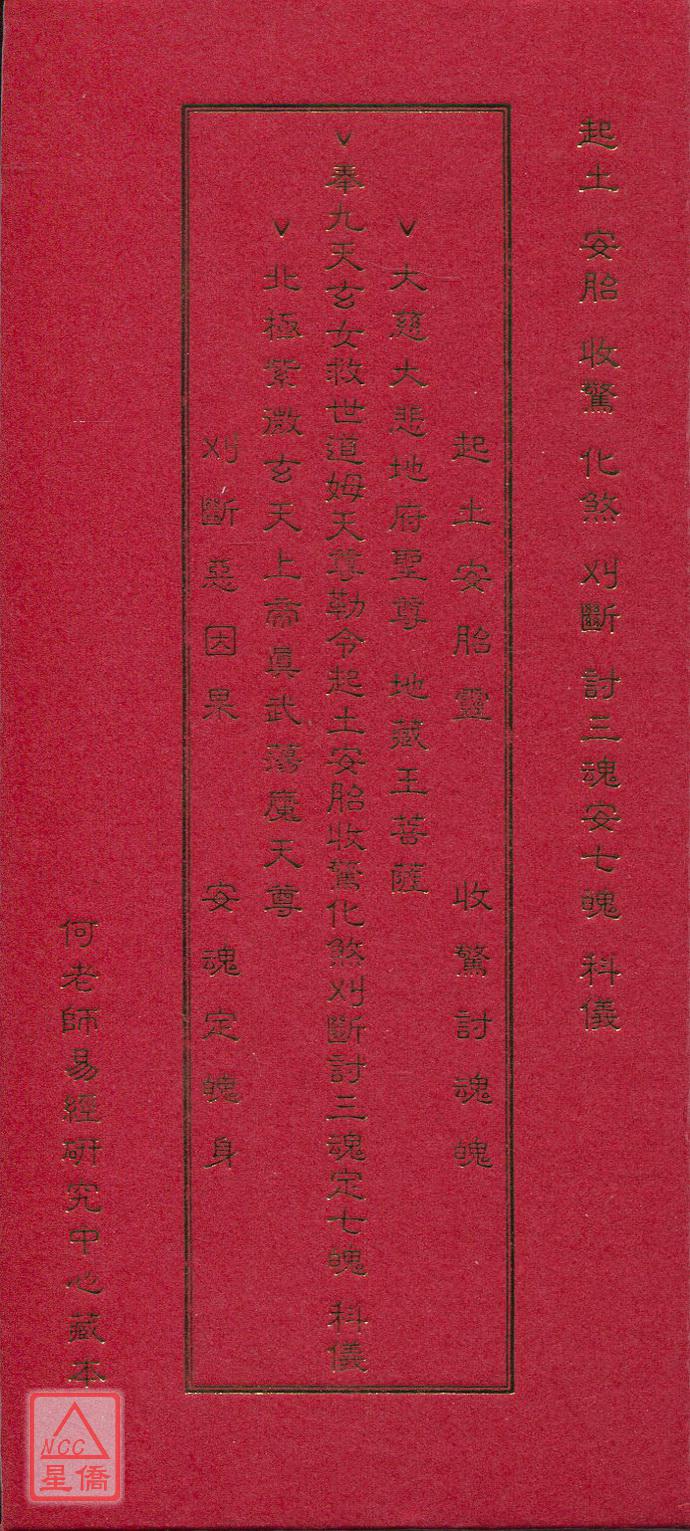 起土 安胎 收驚 化煞 刈斷 討三魂安七魄 科儀
起土安胎靈 收驚討魂魄
大慈大悲地府聖尊 地藏王菩薩
奉九天玄女救世道姆天尊勒令起土安胎收驚化煞刈斷討三魂定七魄 科儀
北極紫微玄天上帝真武蕩魔天尊
刈斷惡因果 安魂定魄身
何老師易經研究中心藏本
NCC
星僑